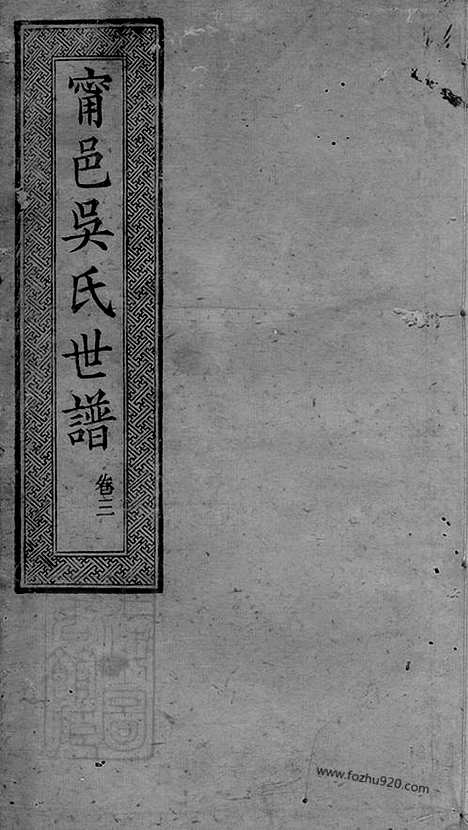 甯邑吳氏世譜
卷三
www.fozhu920.com